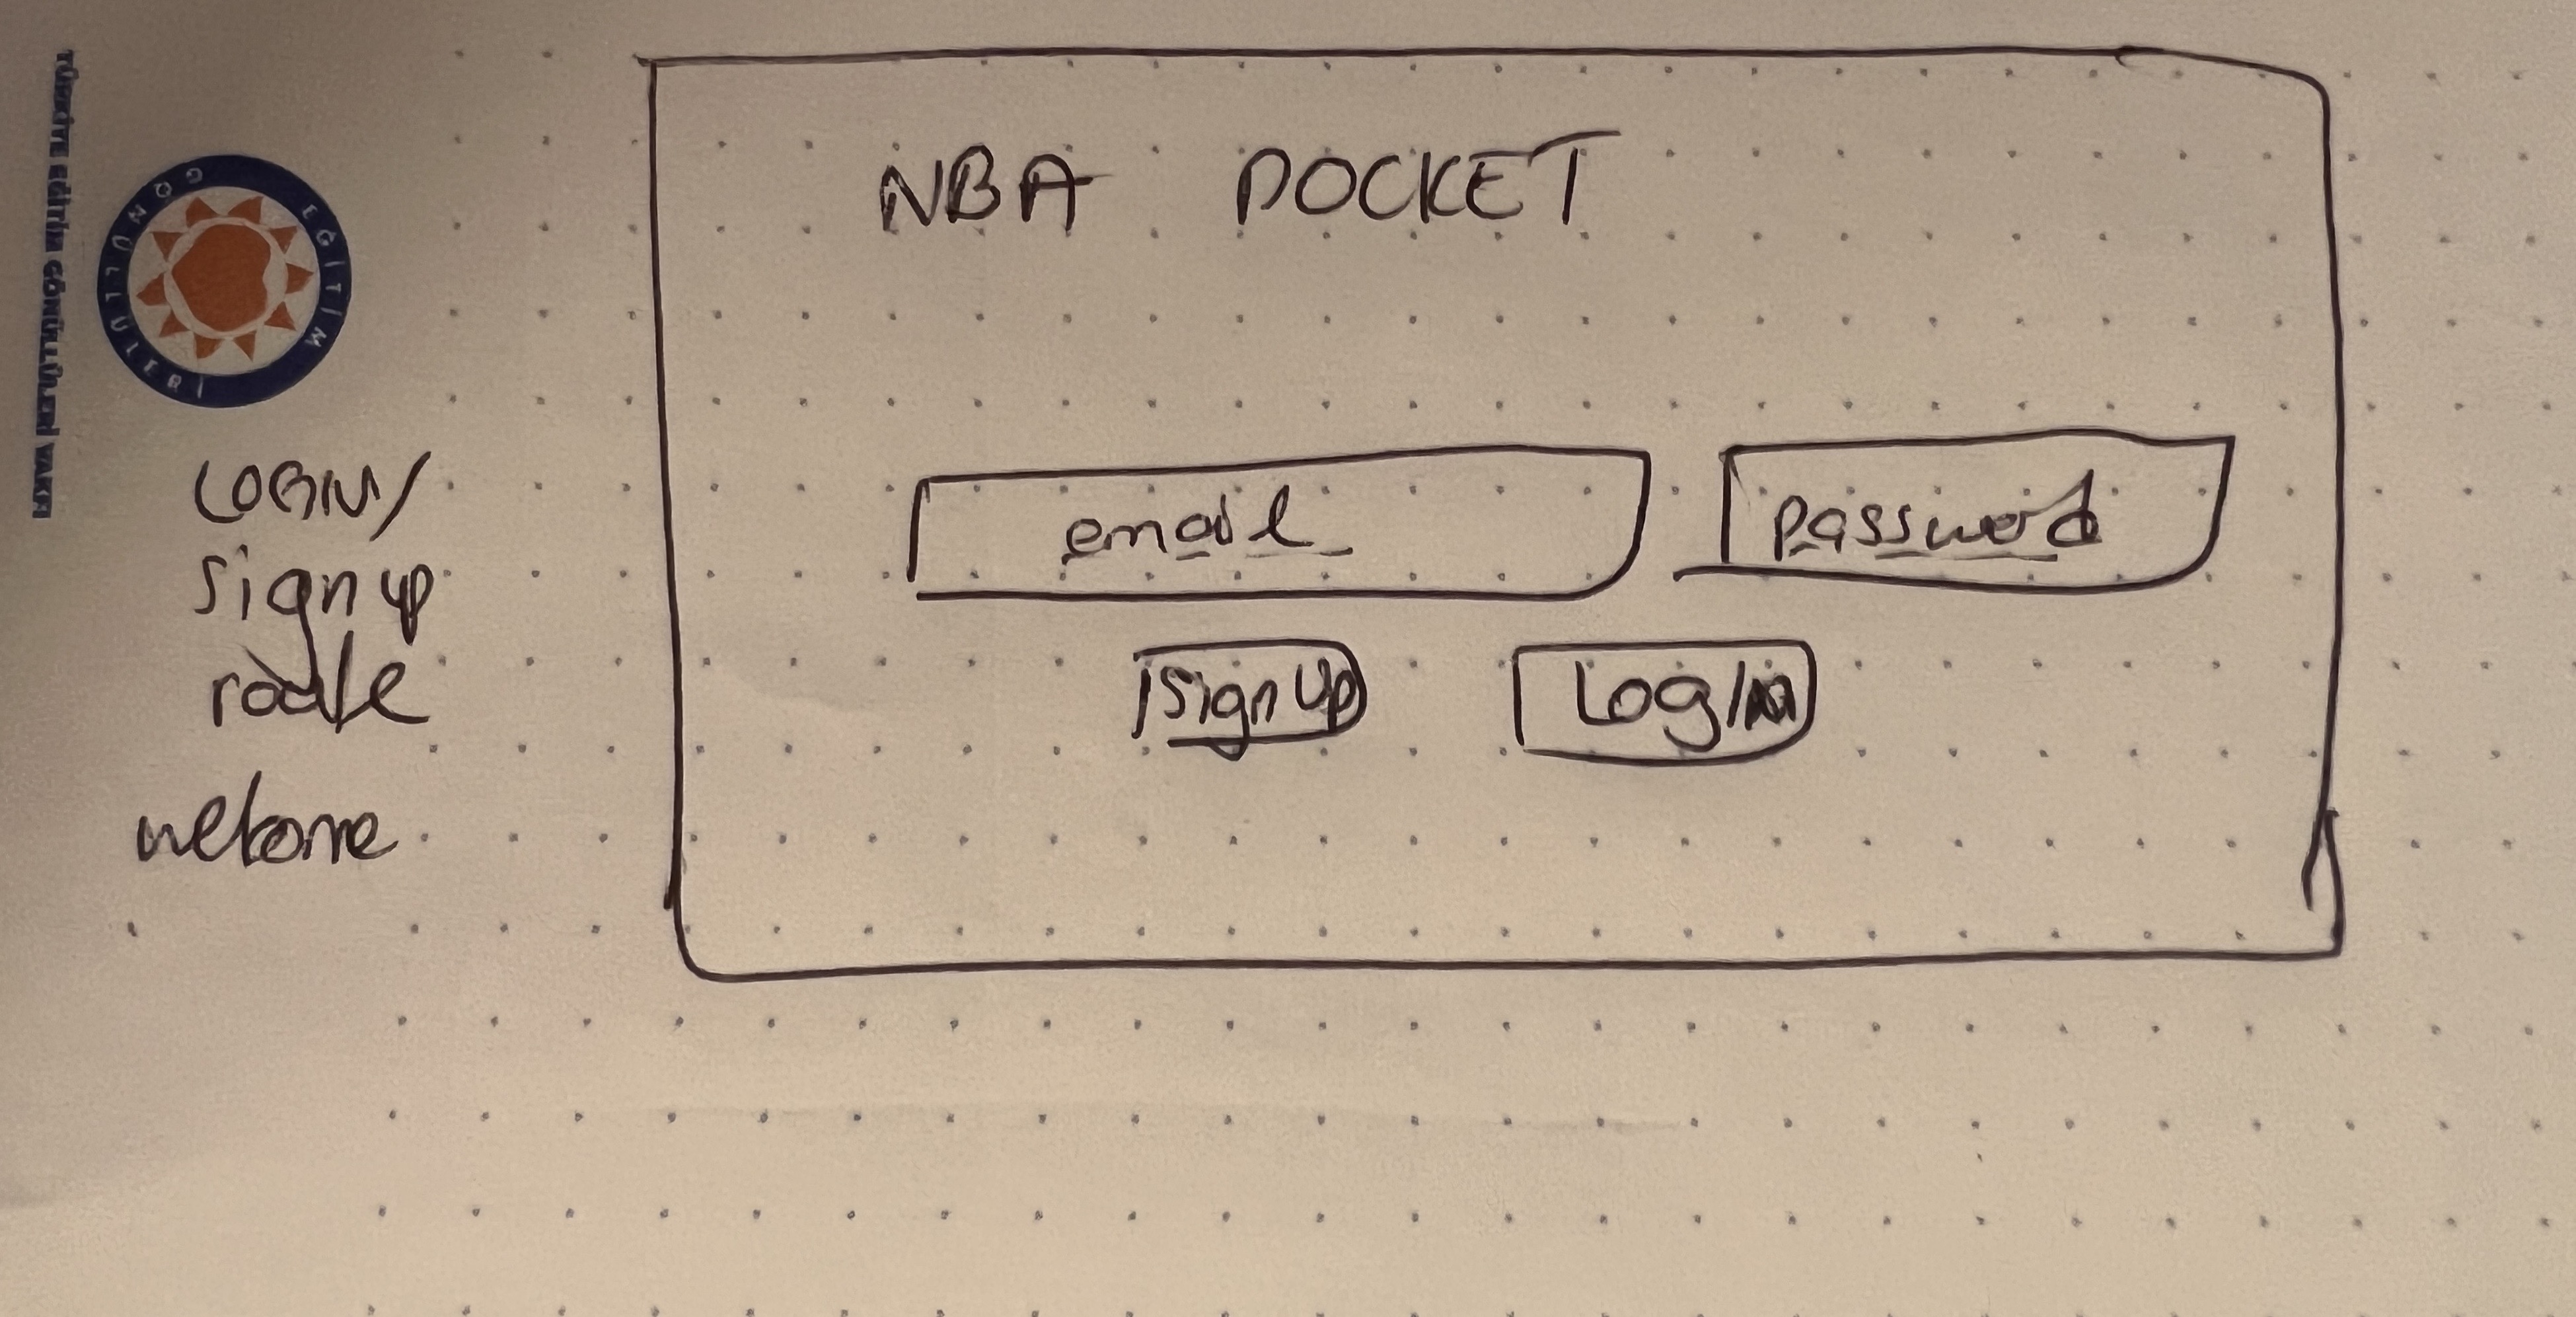 TÜRKİYE EĞİTİM GÖNÜLLÜLERİ VAKFI
EĞİTİM GÖNÜLLÜLERİ
LOGIN/
sign up
route
welcome
NBA POCKET
email
password
sign up
Login